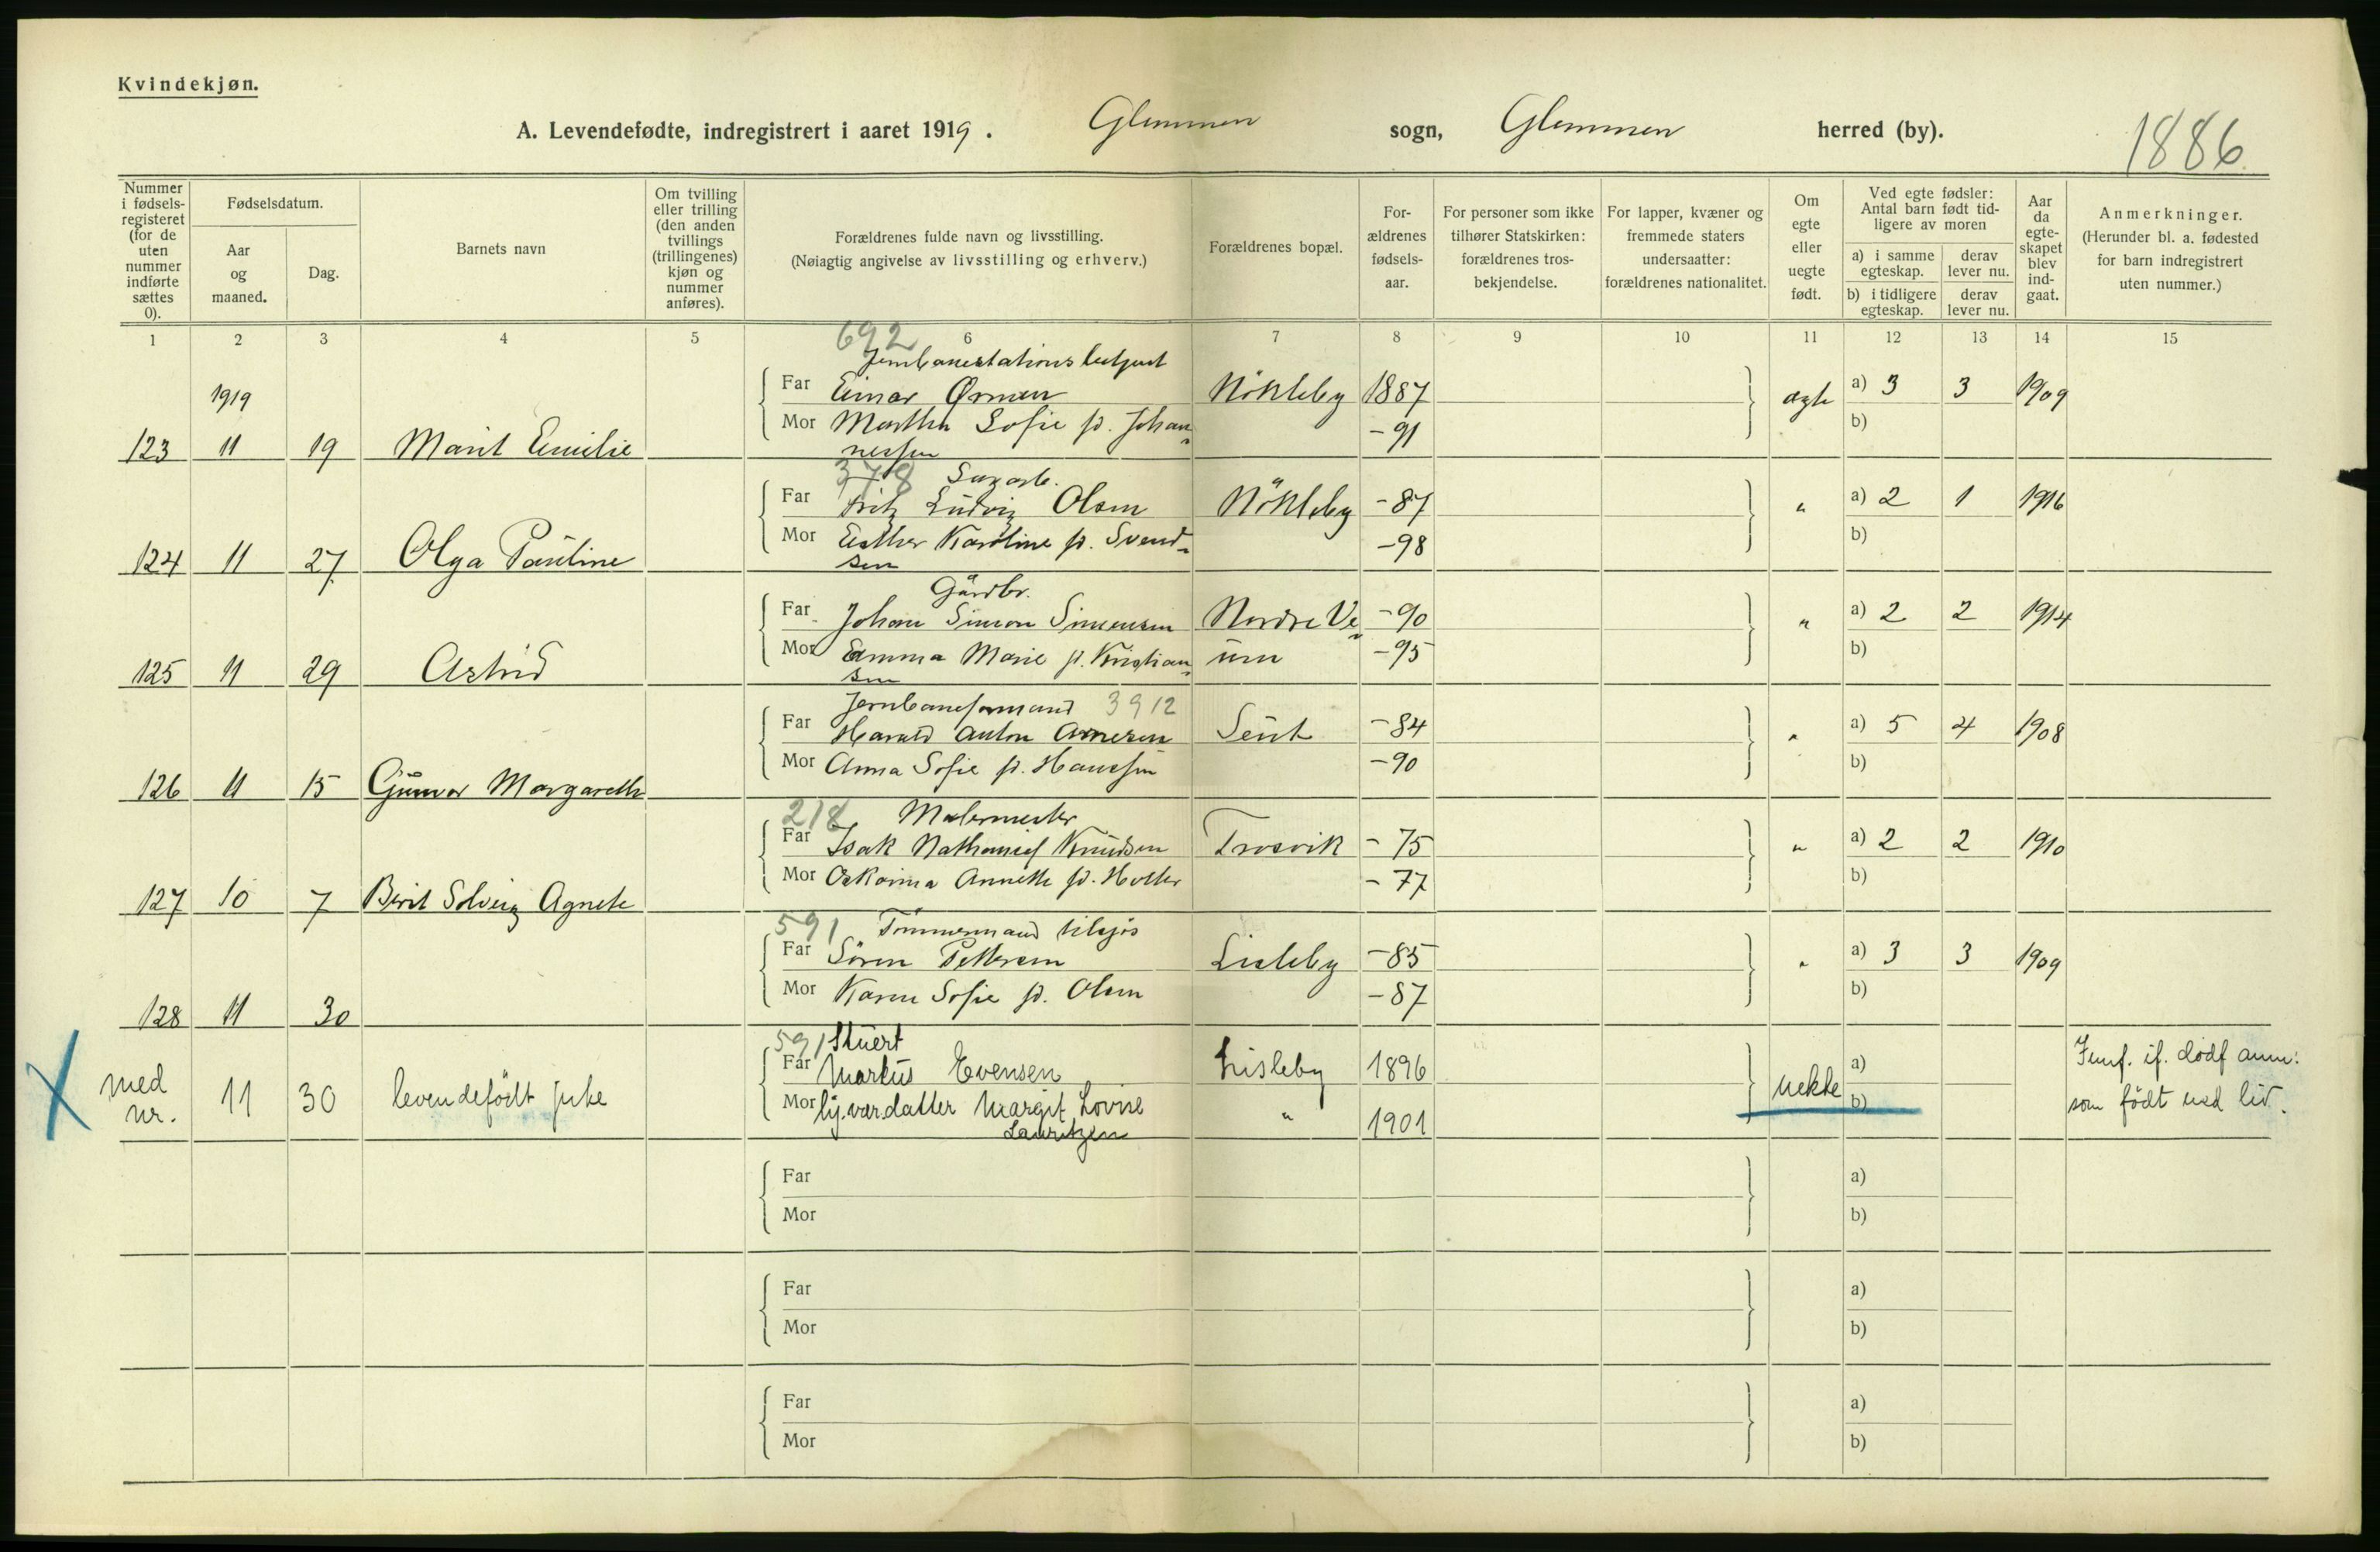 Kvindekjøn.
A. Levendefødte, indregistrert i aaret 1919. Glemmen sogn, Glemmen herred (by). 1886
Nummer i fødsels-registeret (for de uten nummer indførte sættes 0).
Fødselsdatum.
Aar og maaned.
Dag.
Barnets navn
Om tvilling eller trilling (den anden tvillings (trillingenes) kjøn og nummer anføres).
Forældrenes fulde navn og livsstilling.
(Nøiagtig angivelse av livsstilling og erhverv.)
Forældrenes bopæl.
For-ældrenes fødsels-aar.
For personer som ikke tilhører Statskirken: forældrenes tros-bekjendelse.
For lapper, kvæner og fremmede staters undersaatter: forældrenes nationalitet.
Om egte eller uegte født.
Ved egte fødsler: Antal barn født tid-ligere av moren
a) i samme egteskap.
derav lever nu.
b) i tidligere egteskap.
derav lever nu.
Aar da egte-skapet blev ind-gaat.
Anmerkninger.
(Herunder bl. a. fødested for barn indregistrert uten nummer.)
1 2 3 4 5 6 7 8 9 10 11 12 13 14 15
692
Jernbanestationsbetjent
1919
Far Einar Ørmen Nökleby 1887 ægte a) 3 3 1909
Mor Martha Sofie f. Johan- -91 b)
123 11 19 Marit Emilie nessen
378 Sagarb.
Far Fritz Ludvig Olsen Nökleby -87 " a) 2 1 1916
Mor Esther Karoline f. Svend- -98 b)
124 11 27 Olga Pauline sen
Gårdbr.
Far Johan Simon Simensen Nordre Ve- -90 " a) 2 2 1914
Mor Emma Marie f. Kristian- um -95 b)
125 11 29 Astrid sen
Jernbaneformand 3912
Far Harald Anton Arnesen Seut -84 " a) 5 4 1908
Mor Anna Sofie f. Hanssen -90 b)
126 11 15 Gunvor Margareth
218 Malermester
Far Isak Nathaniel Knudsen Trosvik -75 " a) 2 2 1910
Mor Oskarina Annette f. Holter -77 b)
127 10 7 Berit Solveig Agnete
591 Tömmermand tilsjøs
Far Sören Pettersen Lisleby -85 " a) 3 3 1909
Mor Karen Sofie f. Olsen -87 b)
128 11 30
591 Stuert
Far Markus Evensen Lisleby 1896 uekte a)
med nr. 11 30 levendefödt pike
Mor hj.vær.datter Margit Lovise " 1901 b)
Lauritzen
Jemf. if. dödf anm: som födt med liv.
Far a)
Mor b)
Far a)
Mor b)
Far a)
Mor b)